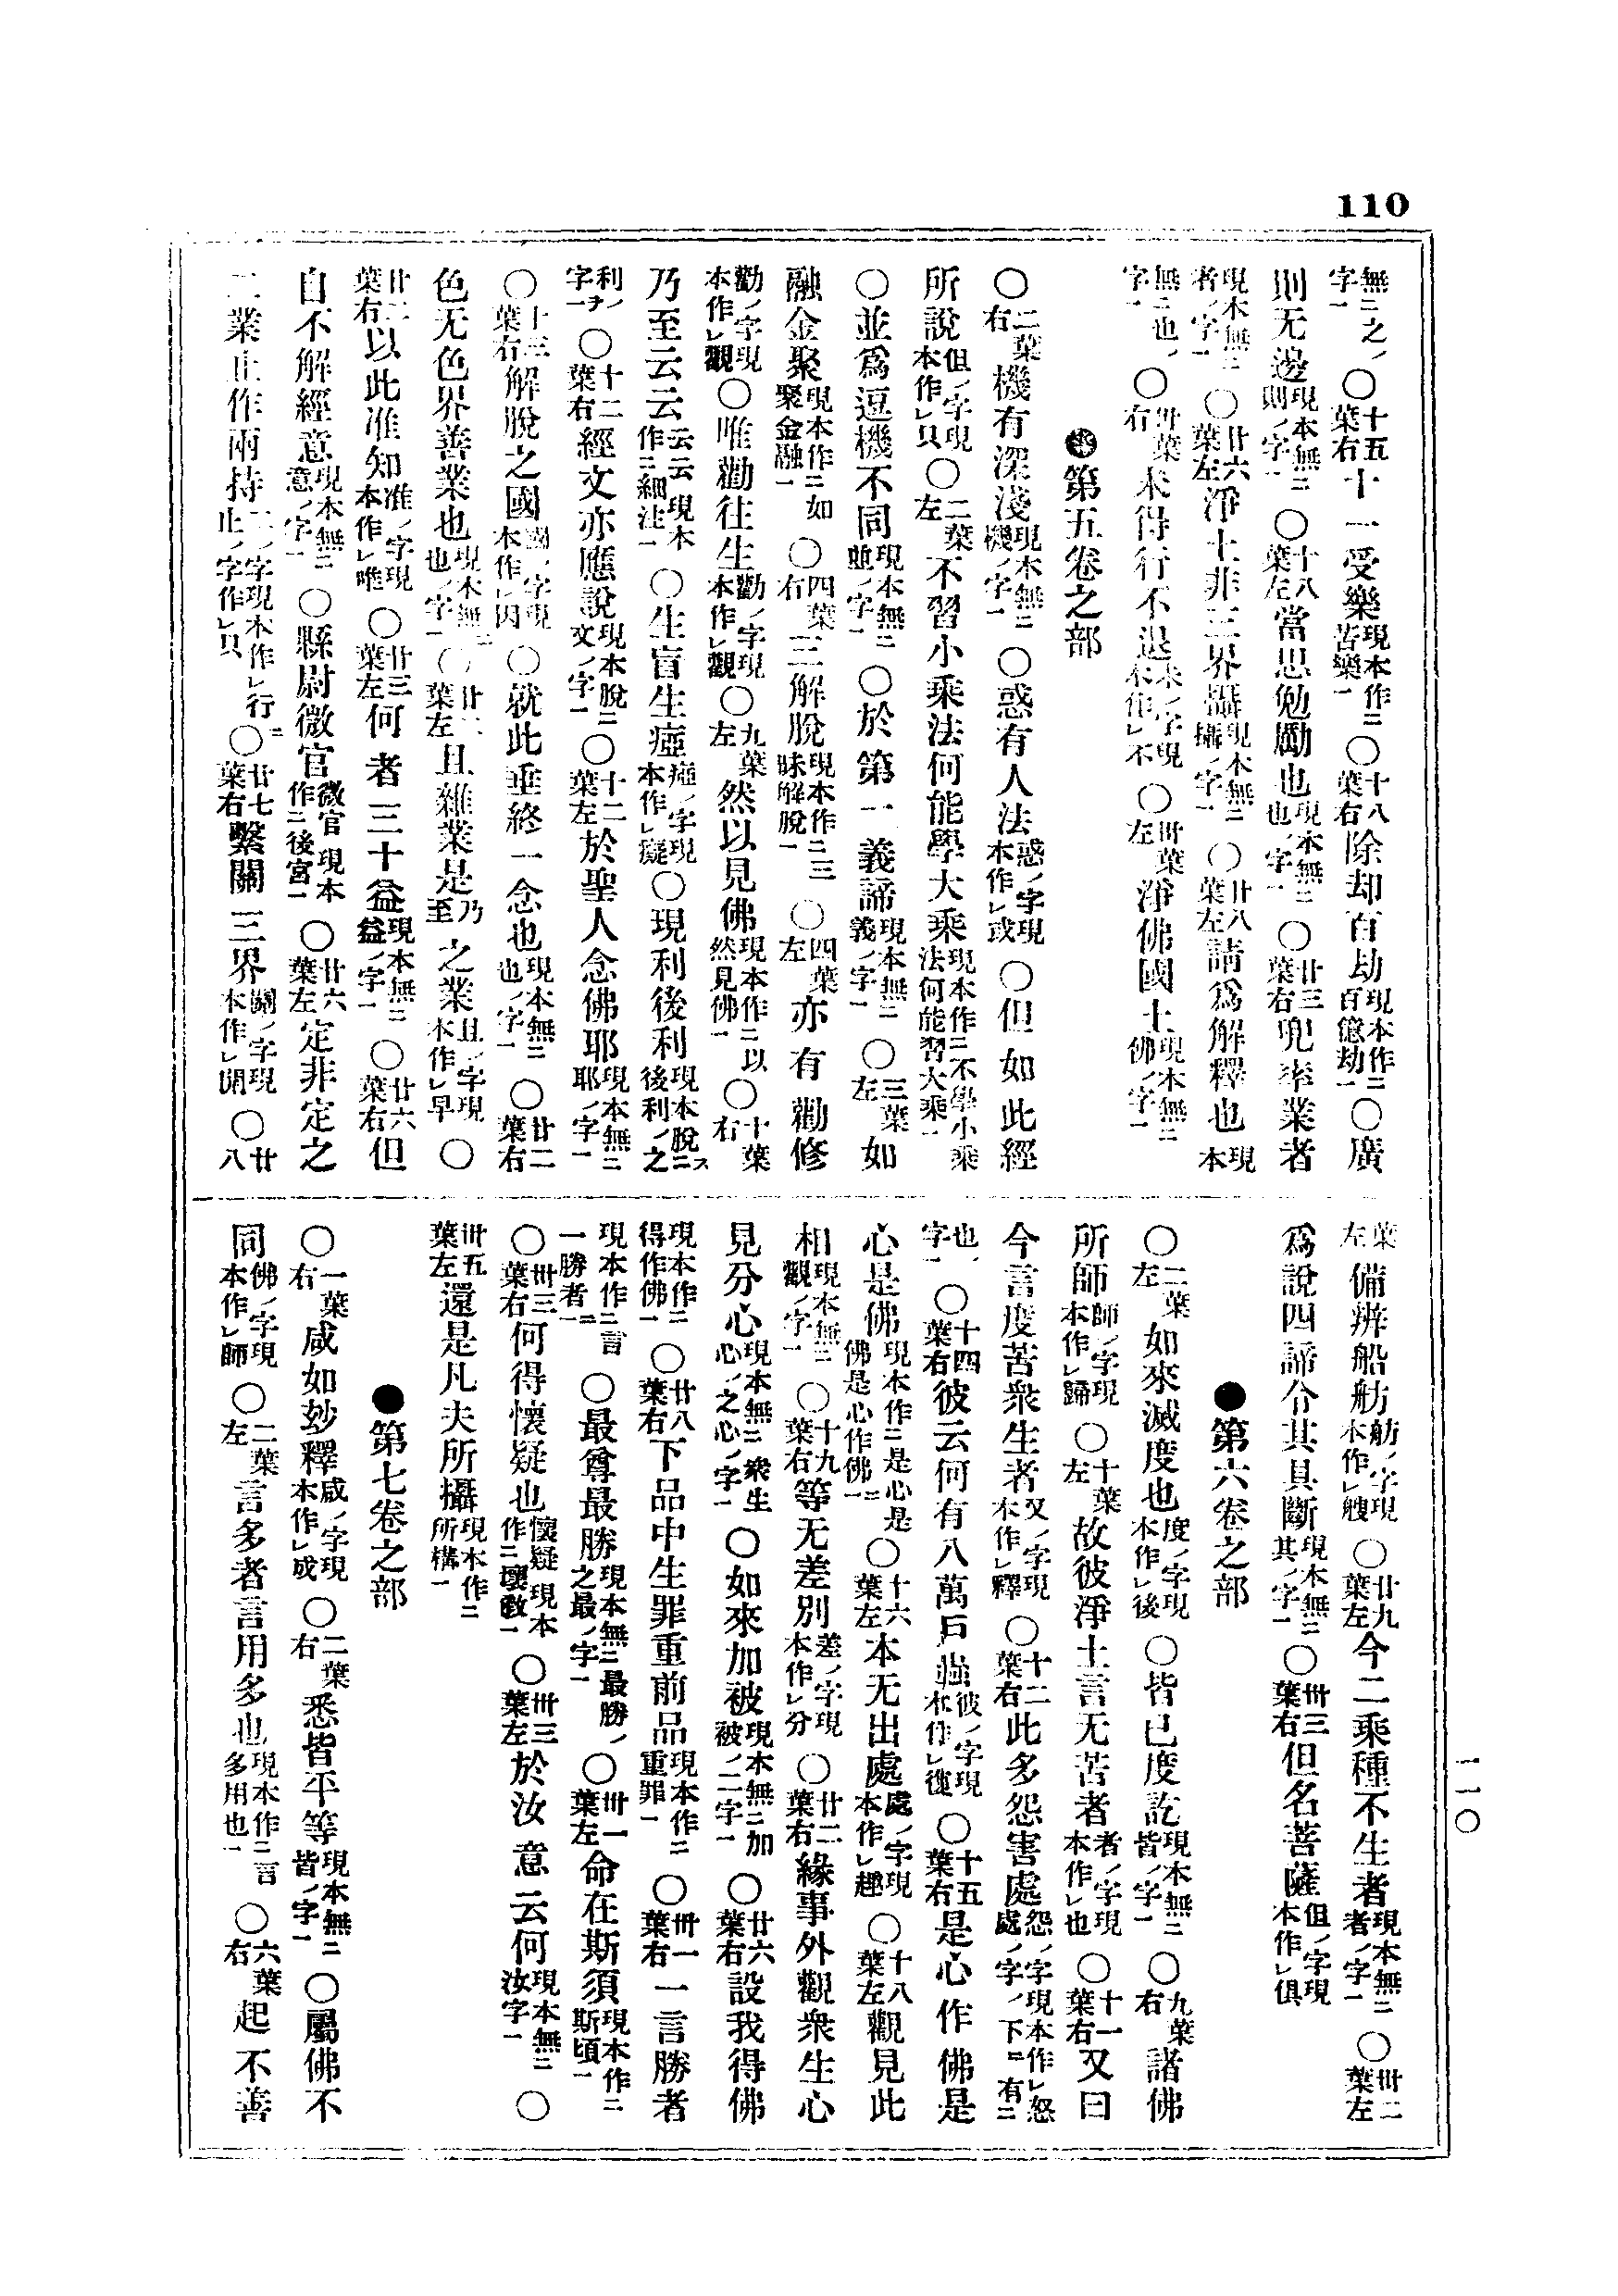 110
無二之ノ字一〇十五葉右十一受樂現本作二苦樂一〇十八葉右除却百劫現本作二百億劫一〇廣
則无邊現本無二則ノ字一〇十八葉左當思勉勵也現本無二也ノ字一〇廿三葉右兜率業者
現本無二者ノ字一〇廿六葉左淨土非三界攝現本無二攝ノ字一〇廿八葉左請爲解釋也現本
無二也ノ字一〇卅葉右未得行不退未ノ字現本作レ不〇卅葉左淨佛國土現本無二佛ノ字一
第五卷之部
〇二葉右機有深淺現本無二機ノ字一〇惑有人法惑ノ字現本作レ或〇但如此經
所説但ノ字現本作レ只〇二葉左不習小乘法何能學大乘現本作二不學小乘法何能習大乘一
〇並爲逗機不同現本無二並ノ字一〇於第一義諦現本無二義ノ字一〇三葉左如
融金聚現本作二如聚金融一〇四葉右三解脫現本作二三昧解脫一〇四葉左亦有勸修
勸ノ字現本作レ觀〇唯勸往生勸ノ字現本作レ觀〇九葉左然以見佛現本作二以然見佛一〇十葉右
乃至云云云云現本作二細註一〇生盲生瘂瘂ノ字現本作レ癡〇現利後利現本脫二後利ノ之
利ノ字一ヲ〇十二葉右經文亦應說現本脫二文ノ字一〇十二葉左於聖人念佛耶現本無二耶ノ字一
〇十三葉右解脫之國國ノ字現本作レ因〇就此垂終一念也現本無二也ノ字一〇廿二葉右
色无色界善業也現本無二也ノ字一〇廿二葉左且雜業是乃至之業且ノ字現本作レ早〇
廿三葉右以此准知准ノ字現本作レ唯〇廿三葉左何者三十益現本無二益ノ字一〇廿六葉右但
自不解經意現本無二意ノ字一〇縣尉微官微官現本作二後宮一〇廿六葉左定非定之
二業止作兩持二ノ字現本作レ行二止ノ字作レ只〇廿七葉右繫關三界關ノ字現本作レ閉〇廿八
葉左備辨船舫舫ノ字現本作レ艘〇廿九葉左今二乘種不生者現本無二者ノ字一〇卅二葉左
爲說四諦令其具斷現本無二其ノ字一〇卅三葉右但名菩薩但ノ字現本作レ俱
●第六卷之部
〇二葉左如來滅度也度ノ字現本作レ後〇皆已度訖現本無二皆ノ字一〇九葉右諸佛
所師師ノ字現本作レ歸〇十葉左故彼淨土言无苦者者ノ字現本作レ也〇十一葉右又曰
今言度苦衆生者又ノ字現本作レ釋〇十二葉右此多怨害處怨ノ字現本作レ怒處ノ字ノ下ニ有二
也ノ字一〇十四葉右彼云何有八萬戶蟲彼ノ字現本作レ復〇十五葉右是心作佛是
心是佛現本作二是心是佛是心作佛一〇十六葉左本无出處處ノ字現本作レ趣〇十八葉左觀見此
相現本無二觀ノ字一〇十九葉右等无差別差ノ字現本作レ分〇廿二葉右緣事外觀衆生心
見分心現本無二衆生心ノ之心ノ字一〇如來加被現本無二加被ノ二字一〇廿六葉右設我得佛
現本作二得作佛一〇廿八葉右下品中生罪重前品現本作二重罪一〇卅一葉右一言勝者
現本作二言一勝者一〇最尊最勝現本無二最勝ノ之最ノ字一〇卅一葉左命在斯須現本作二斯頃一
〇卅三葉右何得懷疑也懷疑現本作二壞數一〇卅三葉左於汝意云何現本無二汝字一〇
卅五葉左還是凡夫所攝現本作二所構一
●第七卷之部
〇一葉右咸如玅釋咸ノ字現本作レ成〇二葉右悉皆平等現本無二皆ノ字一〇屬佛不
同佛ノ字現本作レ師〇二葉左言多者言用多也現本作二言多用也一〇六葉右起不善
一一〇